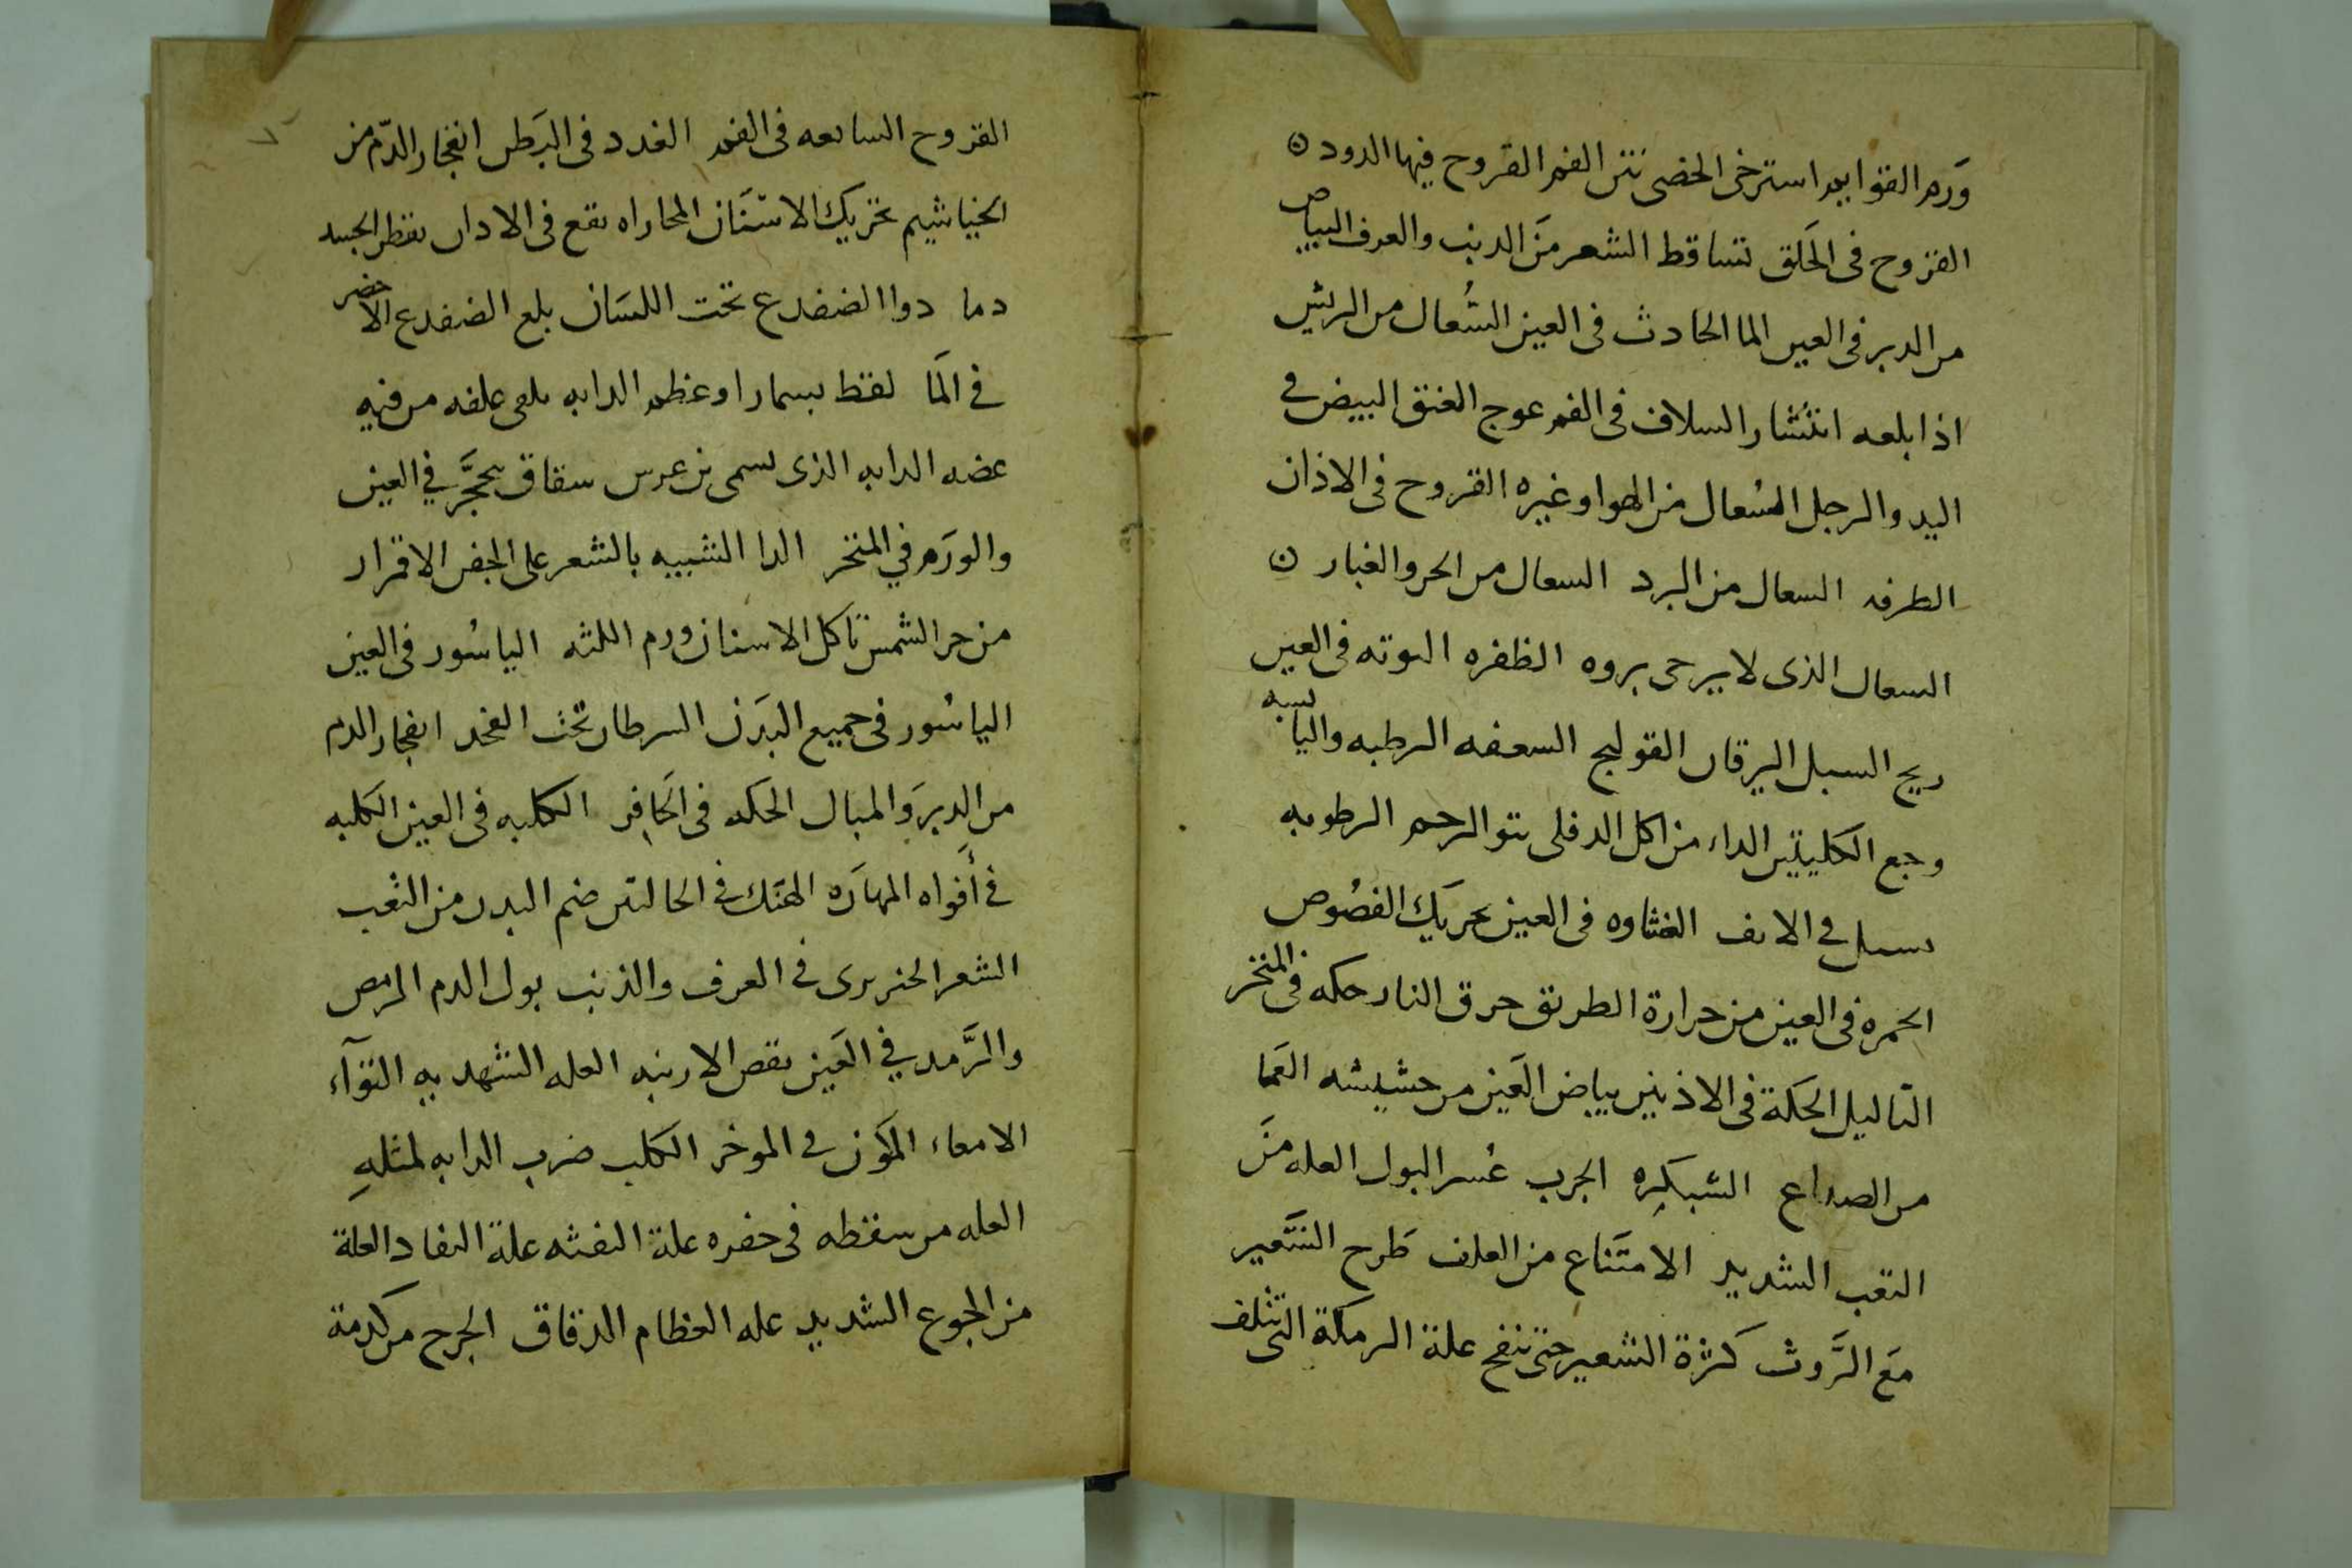 وَرم القوايم استرخى الخصى نتن الفم القروح فيها الدود ه
القروح فى الحَلق تساقط الشعر منَ الدنب والعرف البياض
من الدبر فى العين الما الحادث فى العين السُعال من الريش
اذا بلعه انتشار السلاف فى الفم عوج العنق البيض في
اليد والرجل السُعال من الهوا وغيره القروح فى الاذان
الطرفه السعال من البرد السعال من الحر والغبار ن
السعال الذى لا يرجى بروه الظفره التوته فى العين
ريح السبل اليرقان القولنج السعفه الرطبه واليابسه
وجع الكليتين الداء من اكل الدفلى نتو الرحم الرطوبه
تسيل في الانف الغشاوه فى العين تحريك الفصُوص
الحمره فى العين من حرارة الطريق حرق النار حكه فى المنخر
الثاليل الحكة فى الاذنين بياض العَين من حشيشه العَما
من الصداع الشبكِره الجرب عُسر البول العله منَ
التعب الشديد الامتَناع من العلف طَرح الشَعير
مَع الرَّوث كثرة الشعير حتى تنفخ علة الرمكة التى تتلف
القروح السابعه فى الفم الغدد فى البَطن انفجار الدّم من
الخياشيم تحريك الاسنَان المحاراه تقع فى الاذان تقطر الجسد
دما دوا الضفدع تحت اللسَان بلع الضفدع الاخضر
في المَا لقط بسمار او عظم الدابه يلقى علفه من فيه
عضه الدابه الذى يسمى بن عرس سقاق تحجَّر في العين
والورَم في المنخر الدا الشبيه بالشعر على الجفن الاقمرار
من حر الشمس تَاكل الاسنان ورم اللثه الياسُور فى العين
الياسُور فى جميع البدَن السرطان تحت الفخد انفجار الدم
من الدبرَ والمبال الحكه فى الحَافِر الكلبه فى العين الكلبه
في أفواه المهارَه الهتك في الحالتين ضم البدن من التعب
الشعر الخنزيرى في العرف والذنب بول الدم الرمص
والرَّمد في العَين نقص الارنبه العله الشهديه التوآء
الامعاء المكَون في الموخر الكلب ضرب الدابه لمثلهِ
العله من سقطه فى حفره علة النفثه علة النفاد العلة
من الجوع الشديد عله العظام الدقاق الجرح من كدمة